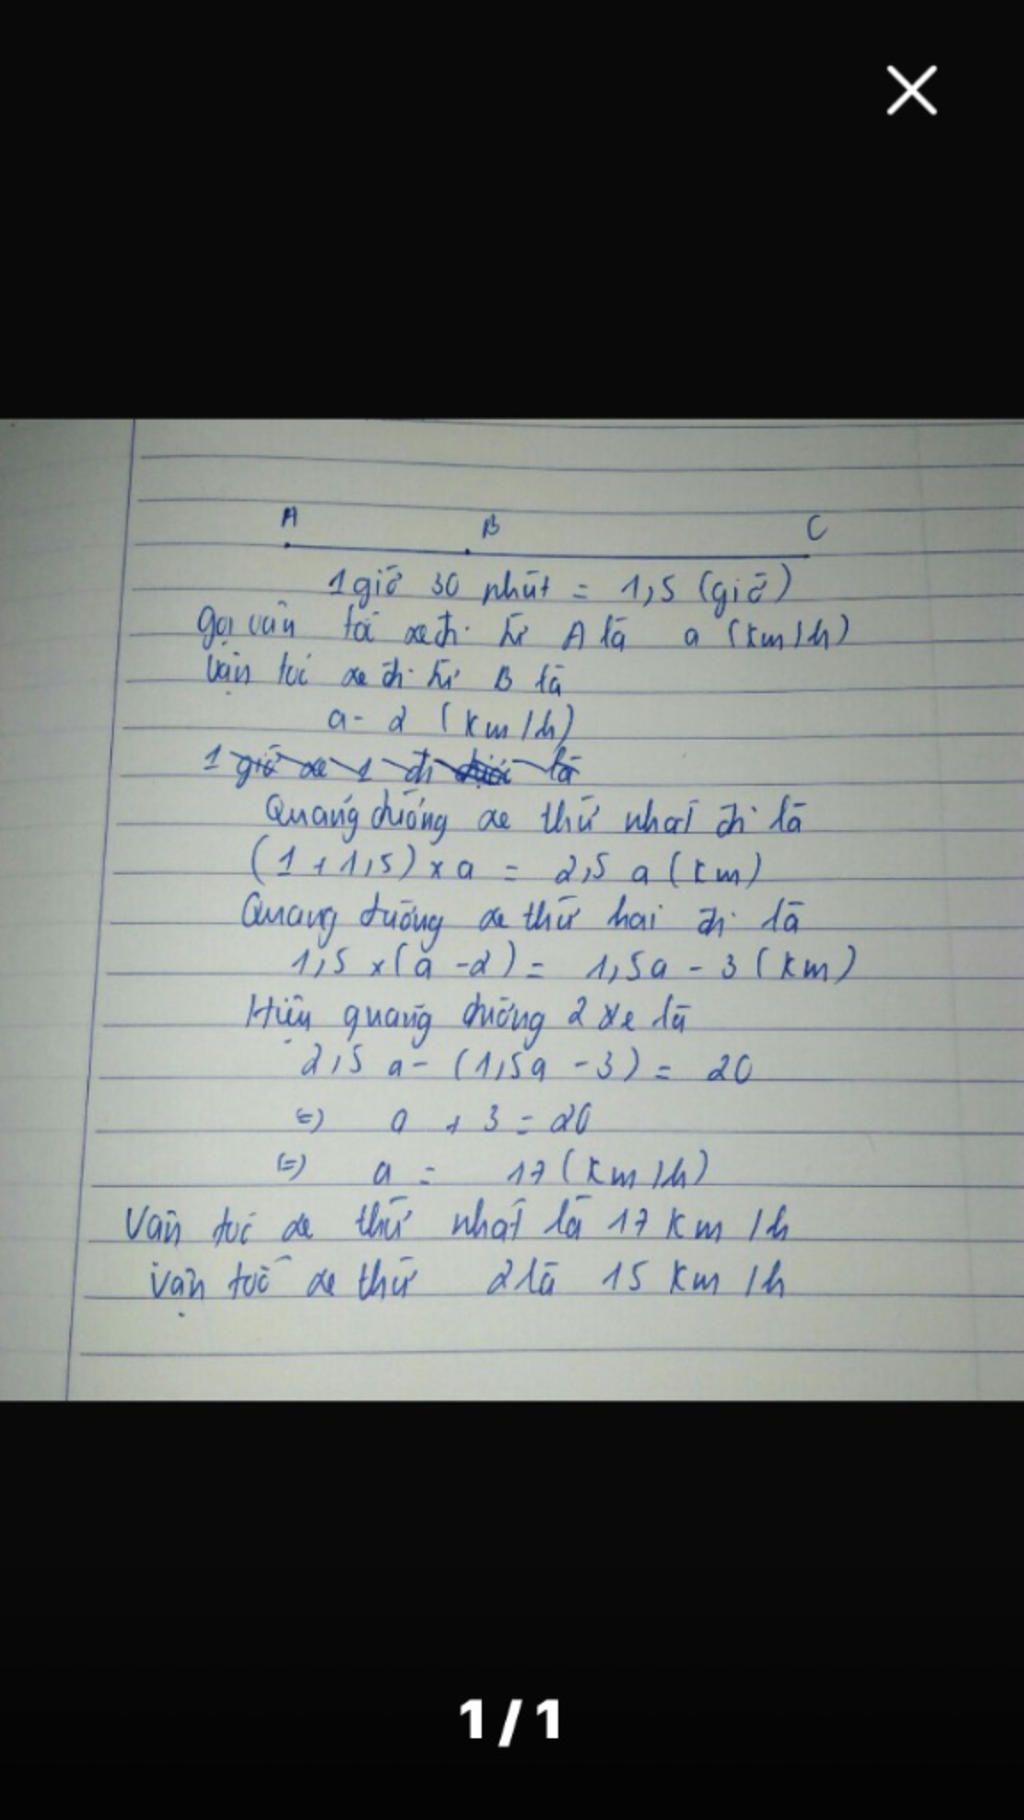 A B C
1 giờ 30 phút = 1,5 (giờ)
Gọi vận tốc xe đi từ A là a (km/h)
Vận tốc xe đi từ B là
a - 2 (km/h)
1 giờ xe 1 đi được là
Quãng đường xe thứ nhất đi là
(1 + 1,5) x a = 2,5 a (km)
Quãng đường xe thứ hai đi là
1,5 x (a - 2) = 1,5a - 3 (km)
Hiệu quãng đường 2 xe là
2,5 a - (1,5a - 3) = 20
(=) a + 3 = 20
(=) a = 17 (km/h)
Vận tốc xe thứ nhất là 17 km/h
Vận tốc xe thứ 2 là 15 km/h
1/1